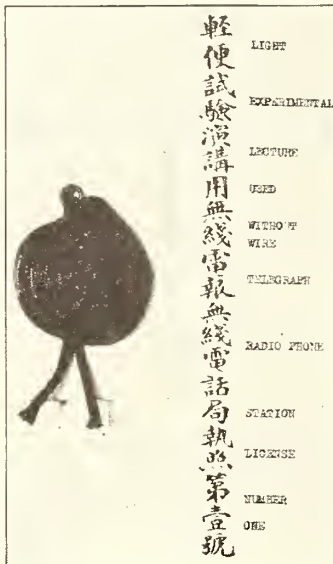 輕便試驗演講用無綫電報無綫電話局執照第壹號
LIGHT
EXPERIMENTAL
LECTURE
USED
WITHOUT
WIRE
TELEGRAPH
RADIO PHONE
STATION
LICENSE
NUMBER
ONE